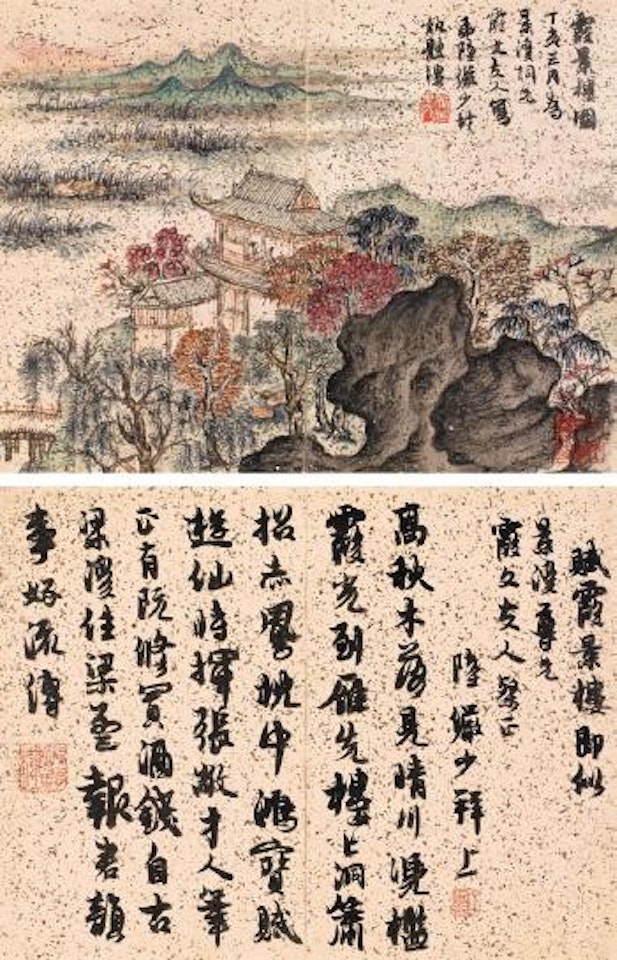 霞景樓圖
丁亥三月為
景溪詞兄
霞文夫人寫
弟陸儼少於
賦霞景樓即似
景溪尊兄
霞文夫人粲正
陸儼少拜上
高秋木落見晴川漫檻
霞光到雁先樓上洞簫
招赤鳳枕中鴻寶賦
遊仙時揮張敞才人筆
正有阮修買酒錢自古
梁溪住梁孟報君韻
事好流傳